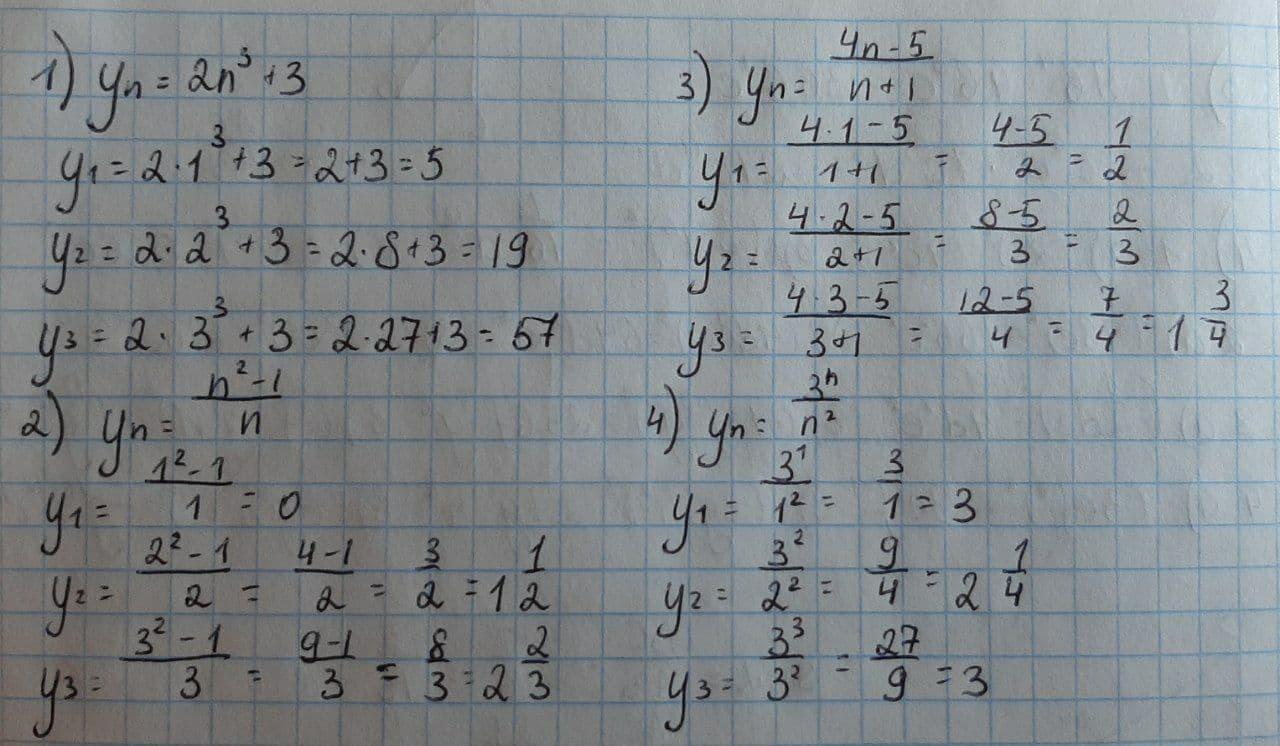 1) yn = 2n³ + 3
y1 = 2 · 1³ + 3 = 2 + 3 = 5
y2 = 2 · 2³ + 3 = 2 · 8 + 3 = 19
y3 = 2 · 3³ + 3 = 2 · 27 + 3 = 57
2) yn = (n² - 1)/n
y1 = (1² - 1)/1 = 0
y2 = (2² - 1)/2 = (4 - 1)/2 = 3/2 = 1 1/2
y3 = (3² - 1)/3 = (9 - 1)/3 = 8/3 = 2 2/3
3) yn = (4n - 5)/(n + 1)
y1 = (4 · 1 - 5)/(1 + 1) = (4 - 5)/2 = 1/2
y2 = (4 · 2 - 5)/(2 + 1) = (8 - 5)/3 = 2/3
y3 = (4 · 3 - 5)/(3 + 1) = (12 - 5)/4 = 7/4 = 1 3/4
4) yn = 3ⁿ/n²
y1 = 3¹/1² = 3/1 = 3
y2 = 3²/2² = 9/4 = 2 1/4
y3 = 3³/3² = 27/9 = 3